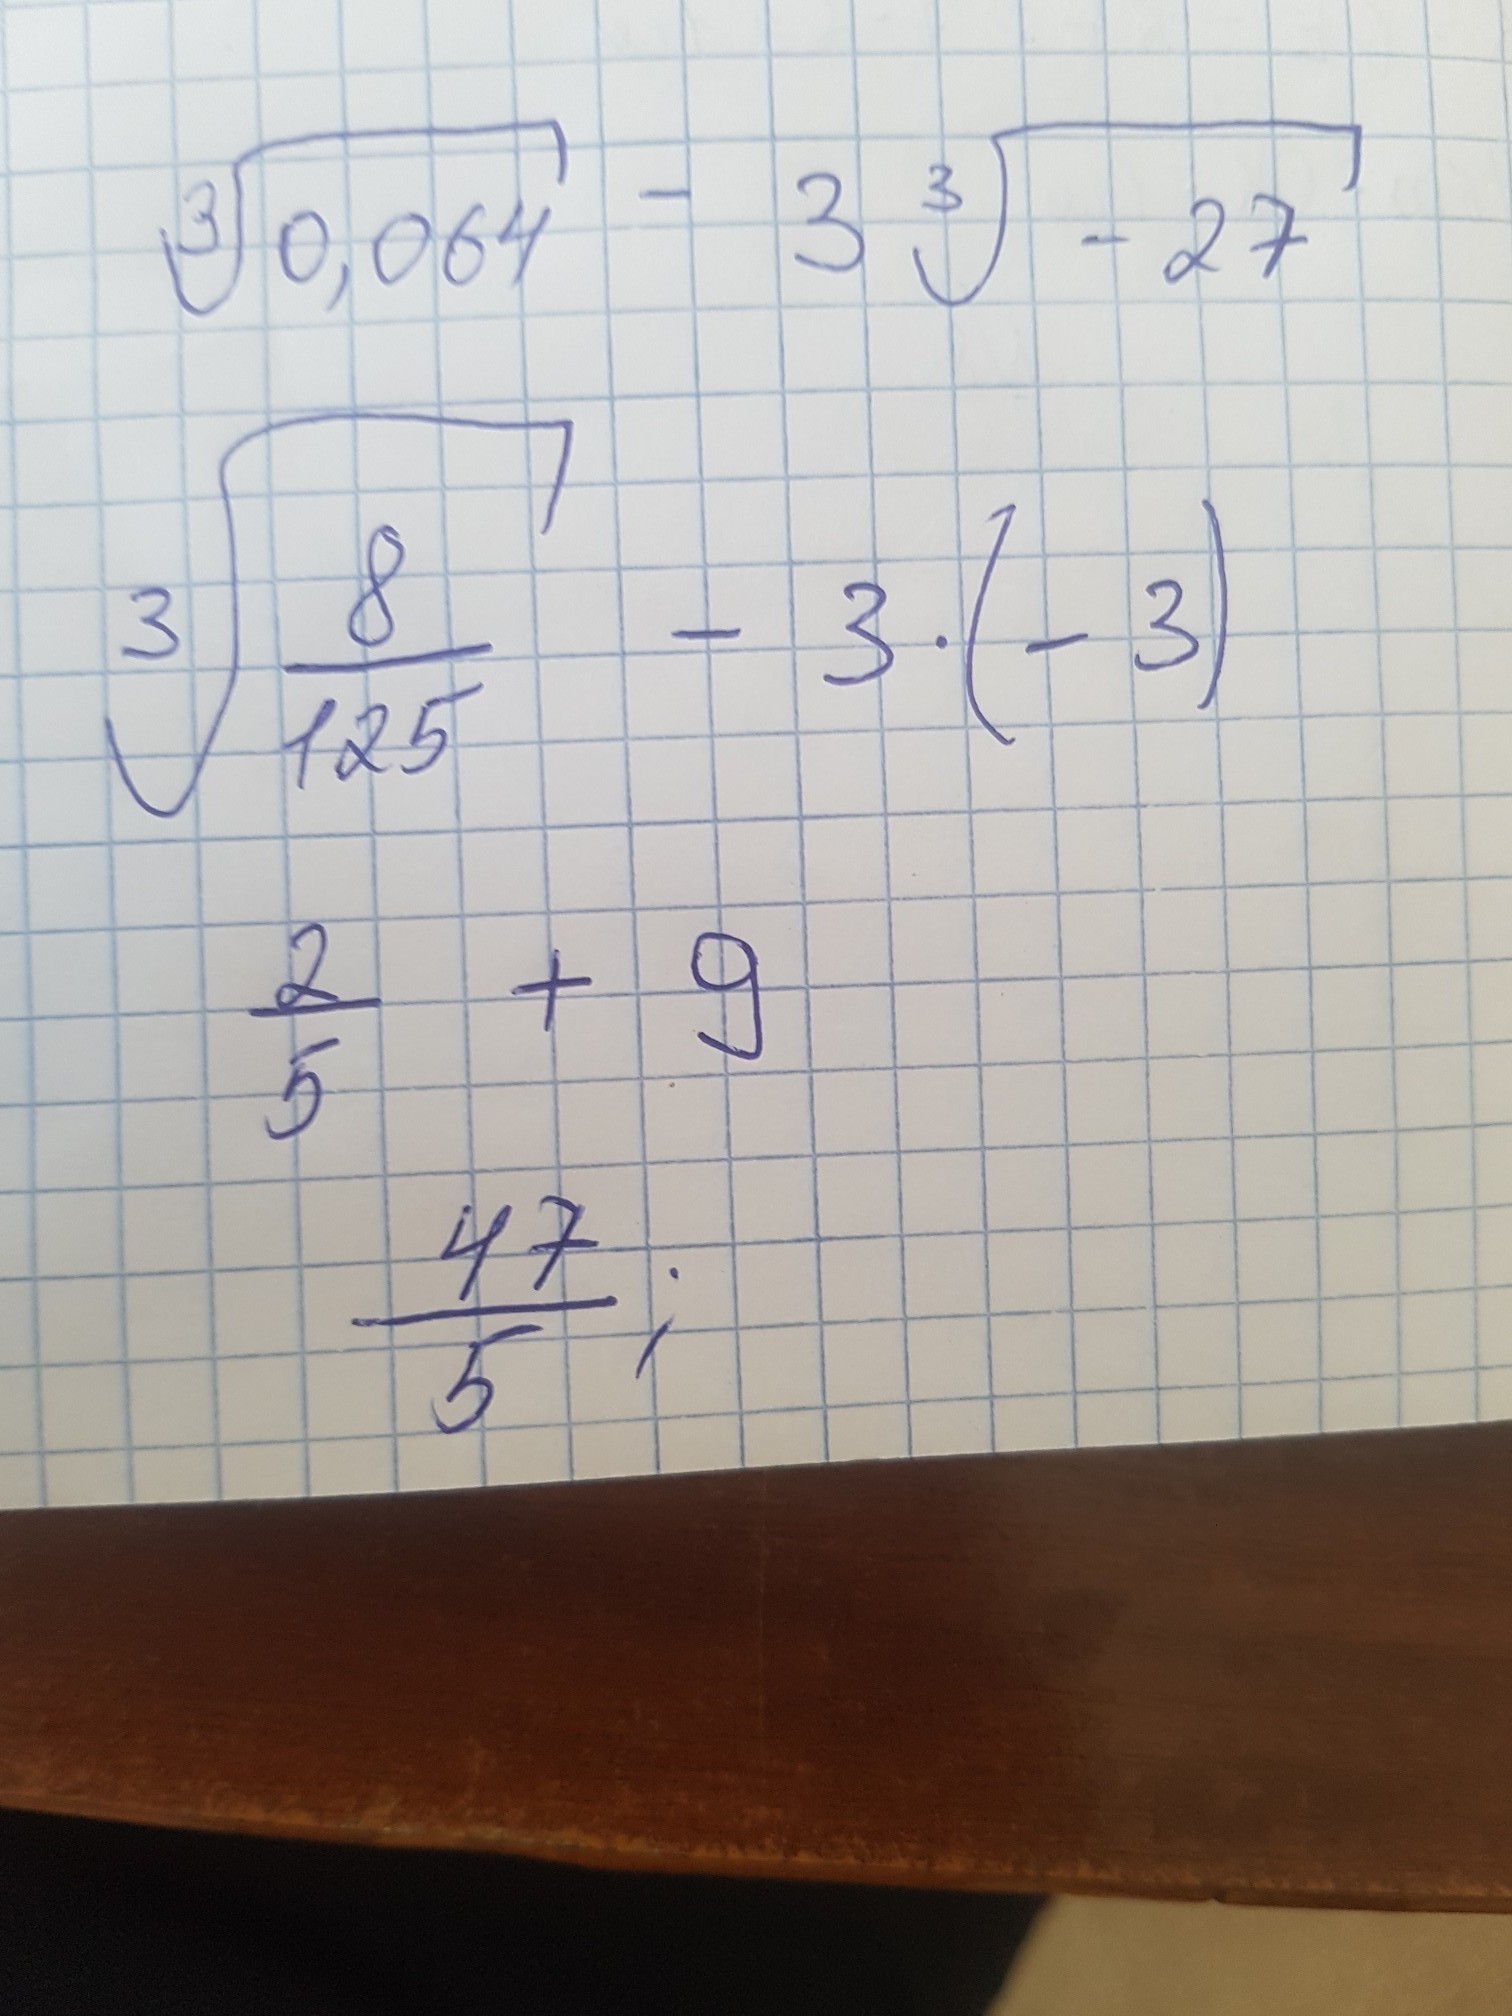 ∛0,064 - 3∛-27
∛(8/125) - 3·(-3)
2/5 + 9
47/5;